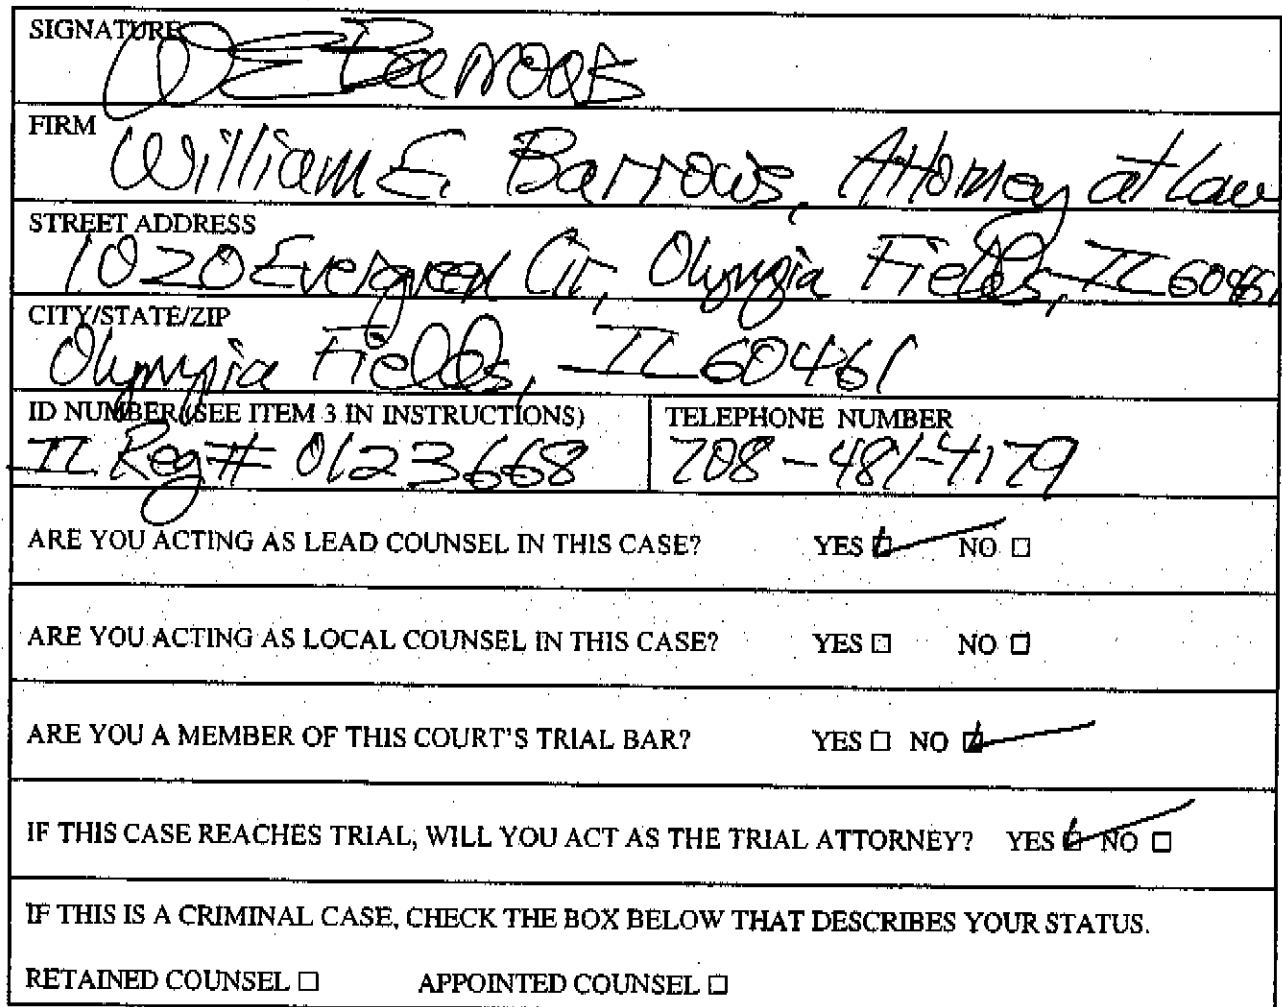 SIGNATURE
WEBarrows
FIRM
William E. Barrows, Attorney at Law
STREET ADDRESS
1020 Evergreen Cir, Olympia Fields, IL 60461
CITY/STATE/ZIP
Olympia Fields, IL 60461
ID NUMBER (SEE ITEM 3 IN INSTRUCTIONS) TELEPHONE NUMBER
IL Reg# 0123668 708-481-4179
ARE YOU ACTING AS LEAD COUNSEL IN THIS CASE? YES ☑ NO ☐
ARE YOU ACTING AS LOCAL COUNSEL IN THIS CASE? YES ☐ NO ☐
ARE YOU A MEMBER OF THIS COURT'S TRIAL BAR? YES ☐ NO ☑
IF THIS CASE REACHES TRIAL, WILL YOU ACT AS THE TRIAL ATTORNEY? YES ☑ NO ☐
IF THIS IS A CRIMINAL CASE, CHECK THE BOX BELOW THAT DESCRIBES YOUR STATUS.
RETAINED COUNSEL ☐ APPOINTED COUNSEL ☐